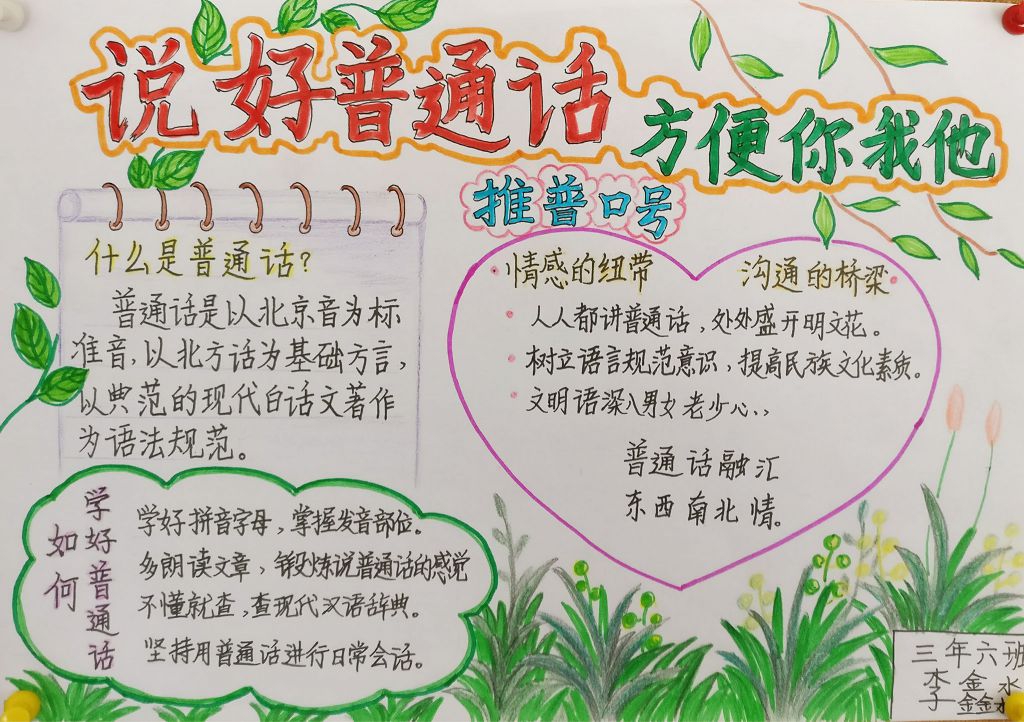 说好普通话
方便你我他
推普口号
什么是普通话?
普通话是以北京音为标
准音,以北方话为基础方言,
以典范的现代白话文著作
为语法规范。
情感的纽带 沟通的桥梁
人人都讲普通话,处处盛开明文花。
树立语言规范意识,提高民族文化素质。
文明语深入男女老少心、、
普通话融汇
东西南北情。
如何
学好普通话
学好拼音字母,掌握发音部位。
多朗读文章,锻炼说普通话的感觉
不懂就查,查现代汉语辞典。
坚持用普通话进行日常会话。
三年六班
李金水